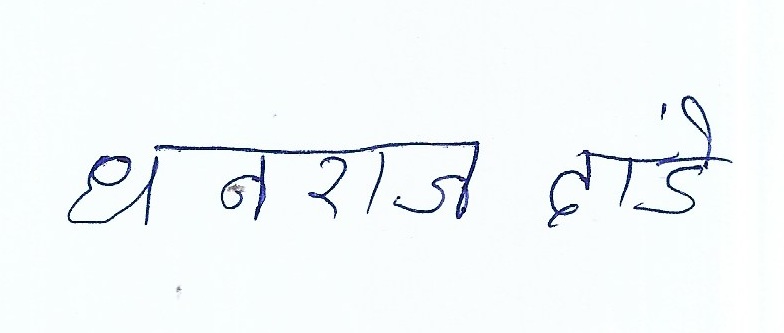 धनराज दांडे